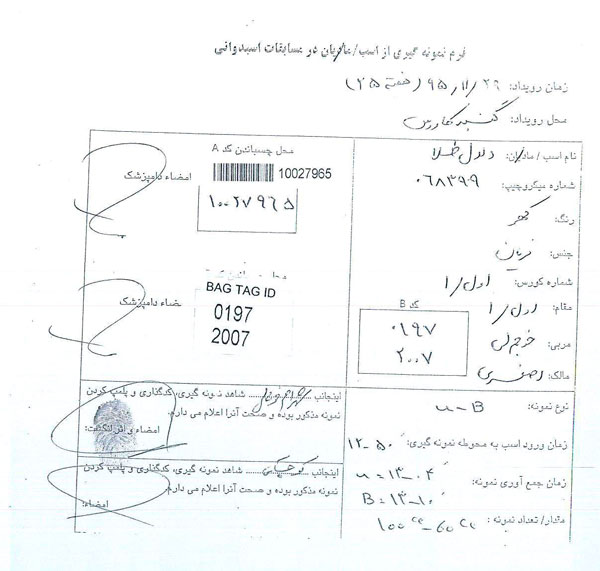 فرم نمونه گیری از اسب/مادیان در مسابقات اسبدوانی
زمان رویداد: ۹۵/۱۱/۲۹ (هفته ۲۵)
محل رویداد: گنبد کاووس
نام اسب / مادیان: دلال طلا
شماره میکروچیپ: ۰۶۸۳۹۹
رنگ: کهر
جنس: نریان
شماره کورس: اول/۱
مقام: اول/۱
مربی:
مالک: اصغری
محل چسباندن کد A
10027965
امضاء دامپزشک
۱۰۰۲۷۹۶۵
BAG TAG ID
0197
2007
امضاء دامپزشک
کد B
۰۱۹۷
۲۰۰۷
نوع نمونه: u-B
زمان ورود اسب به محوطه نمونه گیری: ۱۲-۵۰
زمان جمع آوری نمونه: u=۱۳-۰۴
B=۱۳-۱۰
مقدار/ تعداد نمونه: 100cc-60cc
اینجانب شاهد نمونه گیری، کدگذاری و پلمپ کردن
نمونه مذکور بوده و صحت آنرا اعلام می دارم.
امضاء و اثر انگشت:
اینجانب شاهد نمونه گیری، کدگذاری و پلمپ کردن
نمونه مذکور بوده و صحت آنرا اعلام می دارم.
امضاء: